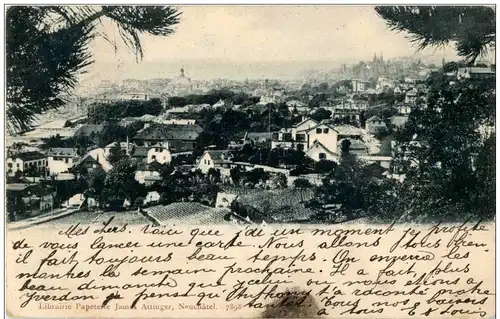 Mes chers. Voici que j'ai un moment j'en profite
de vous lancer une carte. Nous allons tous bien
il fait toujours beau temps. On enverra les
la semaine prochaine. Il a fait plus
beau dimanche à Neuchâtel ou nous étions à
Yverdon je pense qu'Anthony t'a
Tous nos baisers
à tous
Librairie Papeterie James Attinger, Neuchâtel. 7898